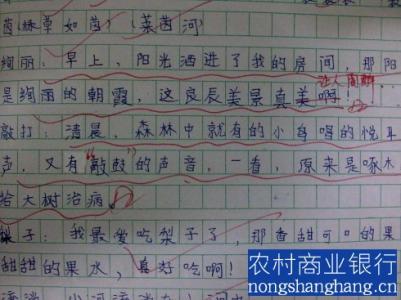 茵(绿草如茵)(莱茵河)
绚丽:早上,阳光洒进了我的房间,那阳
是绚丽的朝霞,这良辰美景真美啊!
敲打:清晨,森林中就有的小鸟唱的悦耳
声,又有“敲鼓”的声音,一看,原来是啄木
给大树治病。
梨子:我最爱吃梨子了,那香甜可口的果
甜甜的果水,真好吃啊!
农村商业银行
nongshanghang.cn